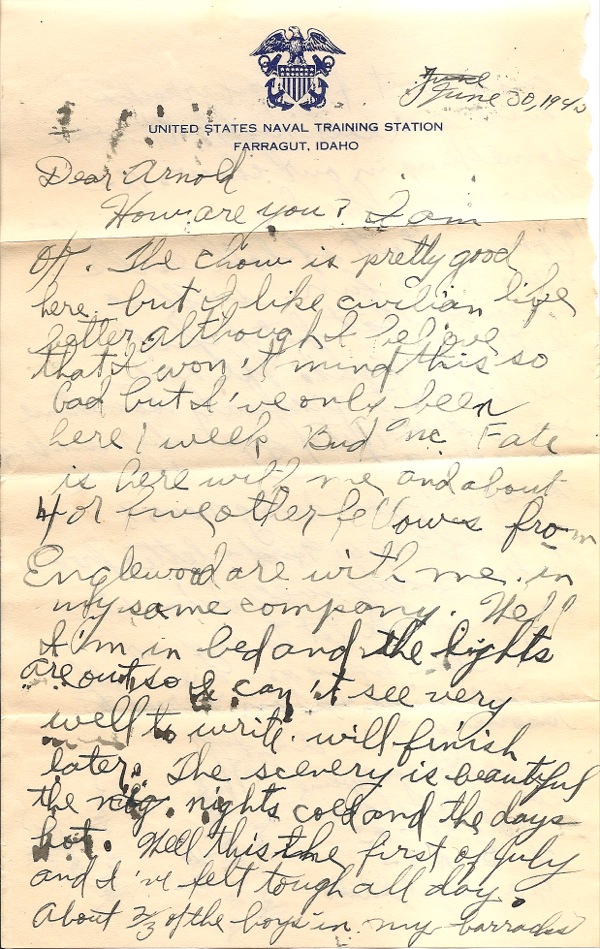 June
June 30, 194
UNITED STATES NAVAL TRAINING STATION
FARRAGUT, IDAHO
Dear Arnold
How are you? I am
O.K. The chow is pretty good
here but I like civilian life
better although I believe
that I won't mind this so
bad but I've only been
here 1 week. Bud Mc Fate
is here with me and about
4 or five other fellows from
Englewood are with me in
my same company. Well
I'm in bed and the lights
are out so I can't see very
well to write. will finish
later. The scenery is beautiful
the nights cold and the days
hot. Well this the first of July
and I've felt tough all day.
About 2/3 of the boys in my barracks